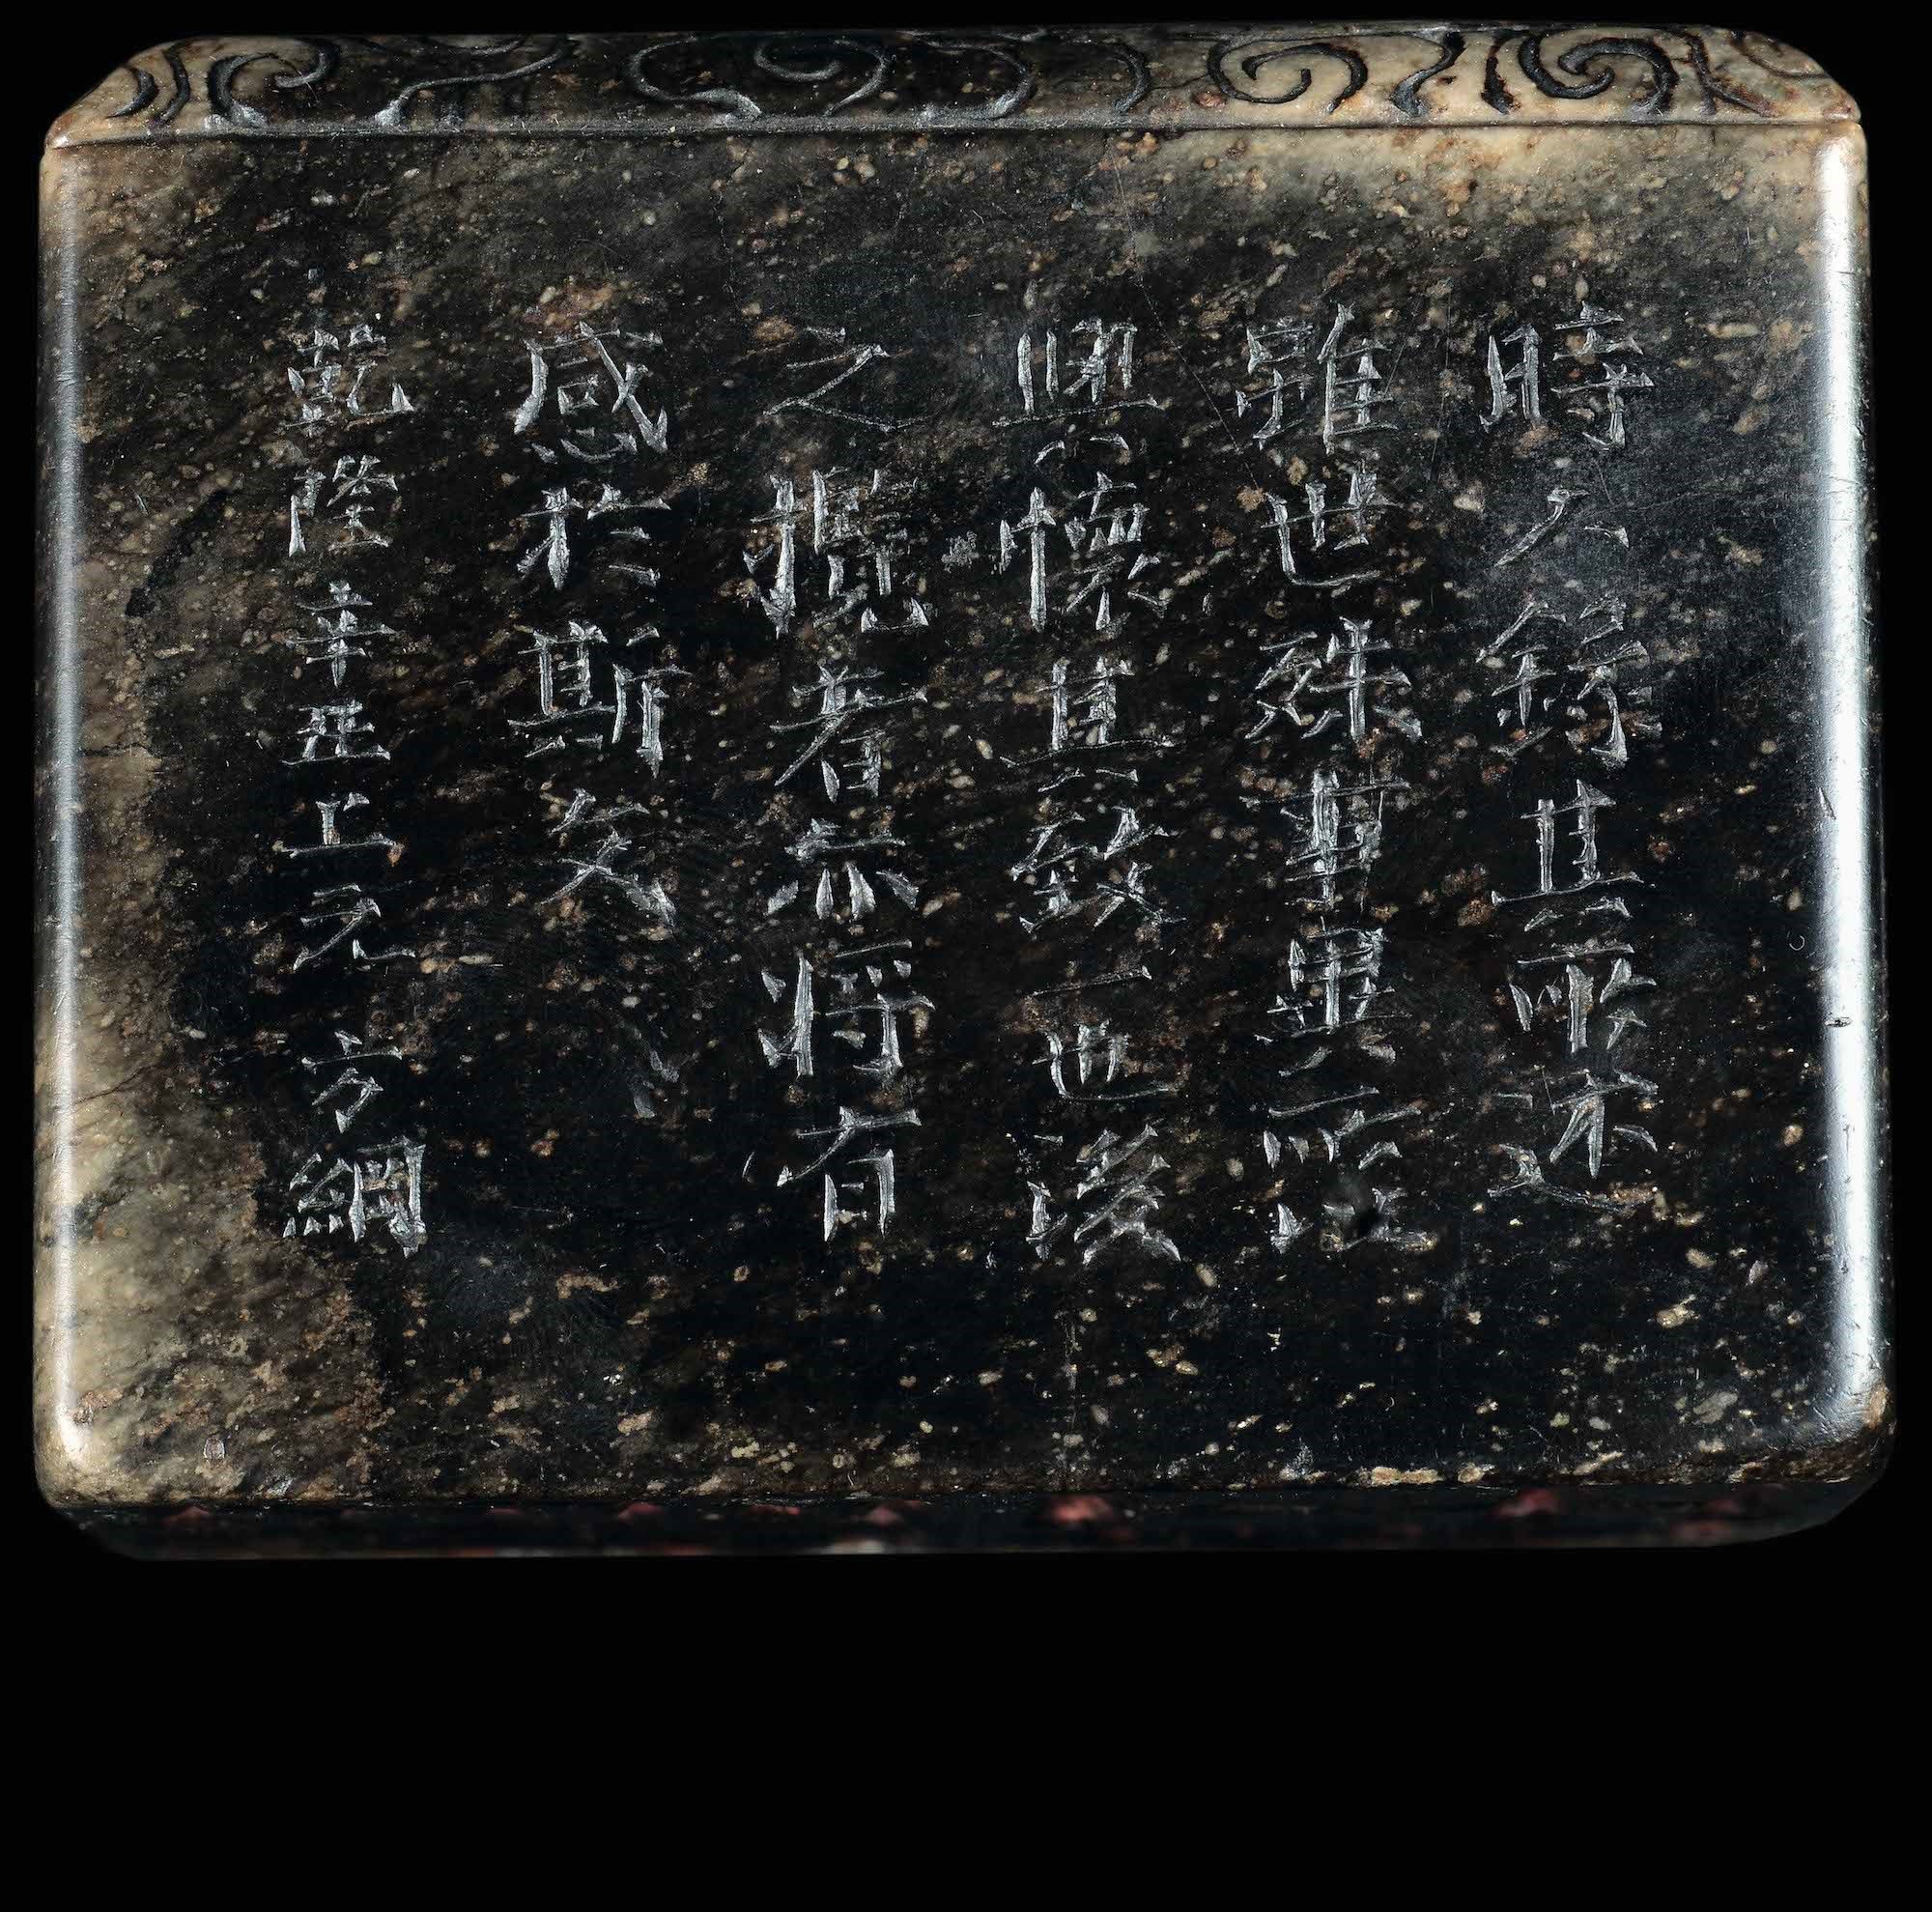 時人錄其所述
雖世殊事異所以
興懷其致一也後
之攬者亦將有
感於斯文
乾隆辛丑上元方綱